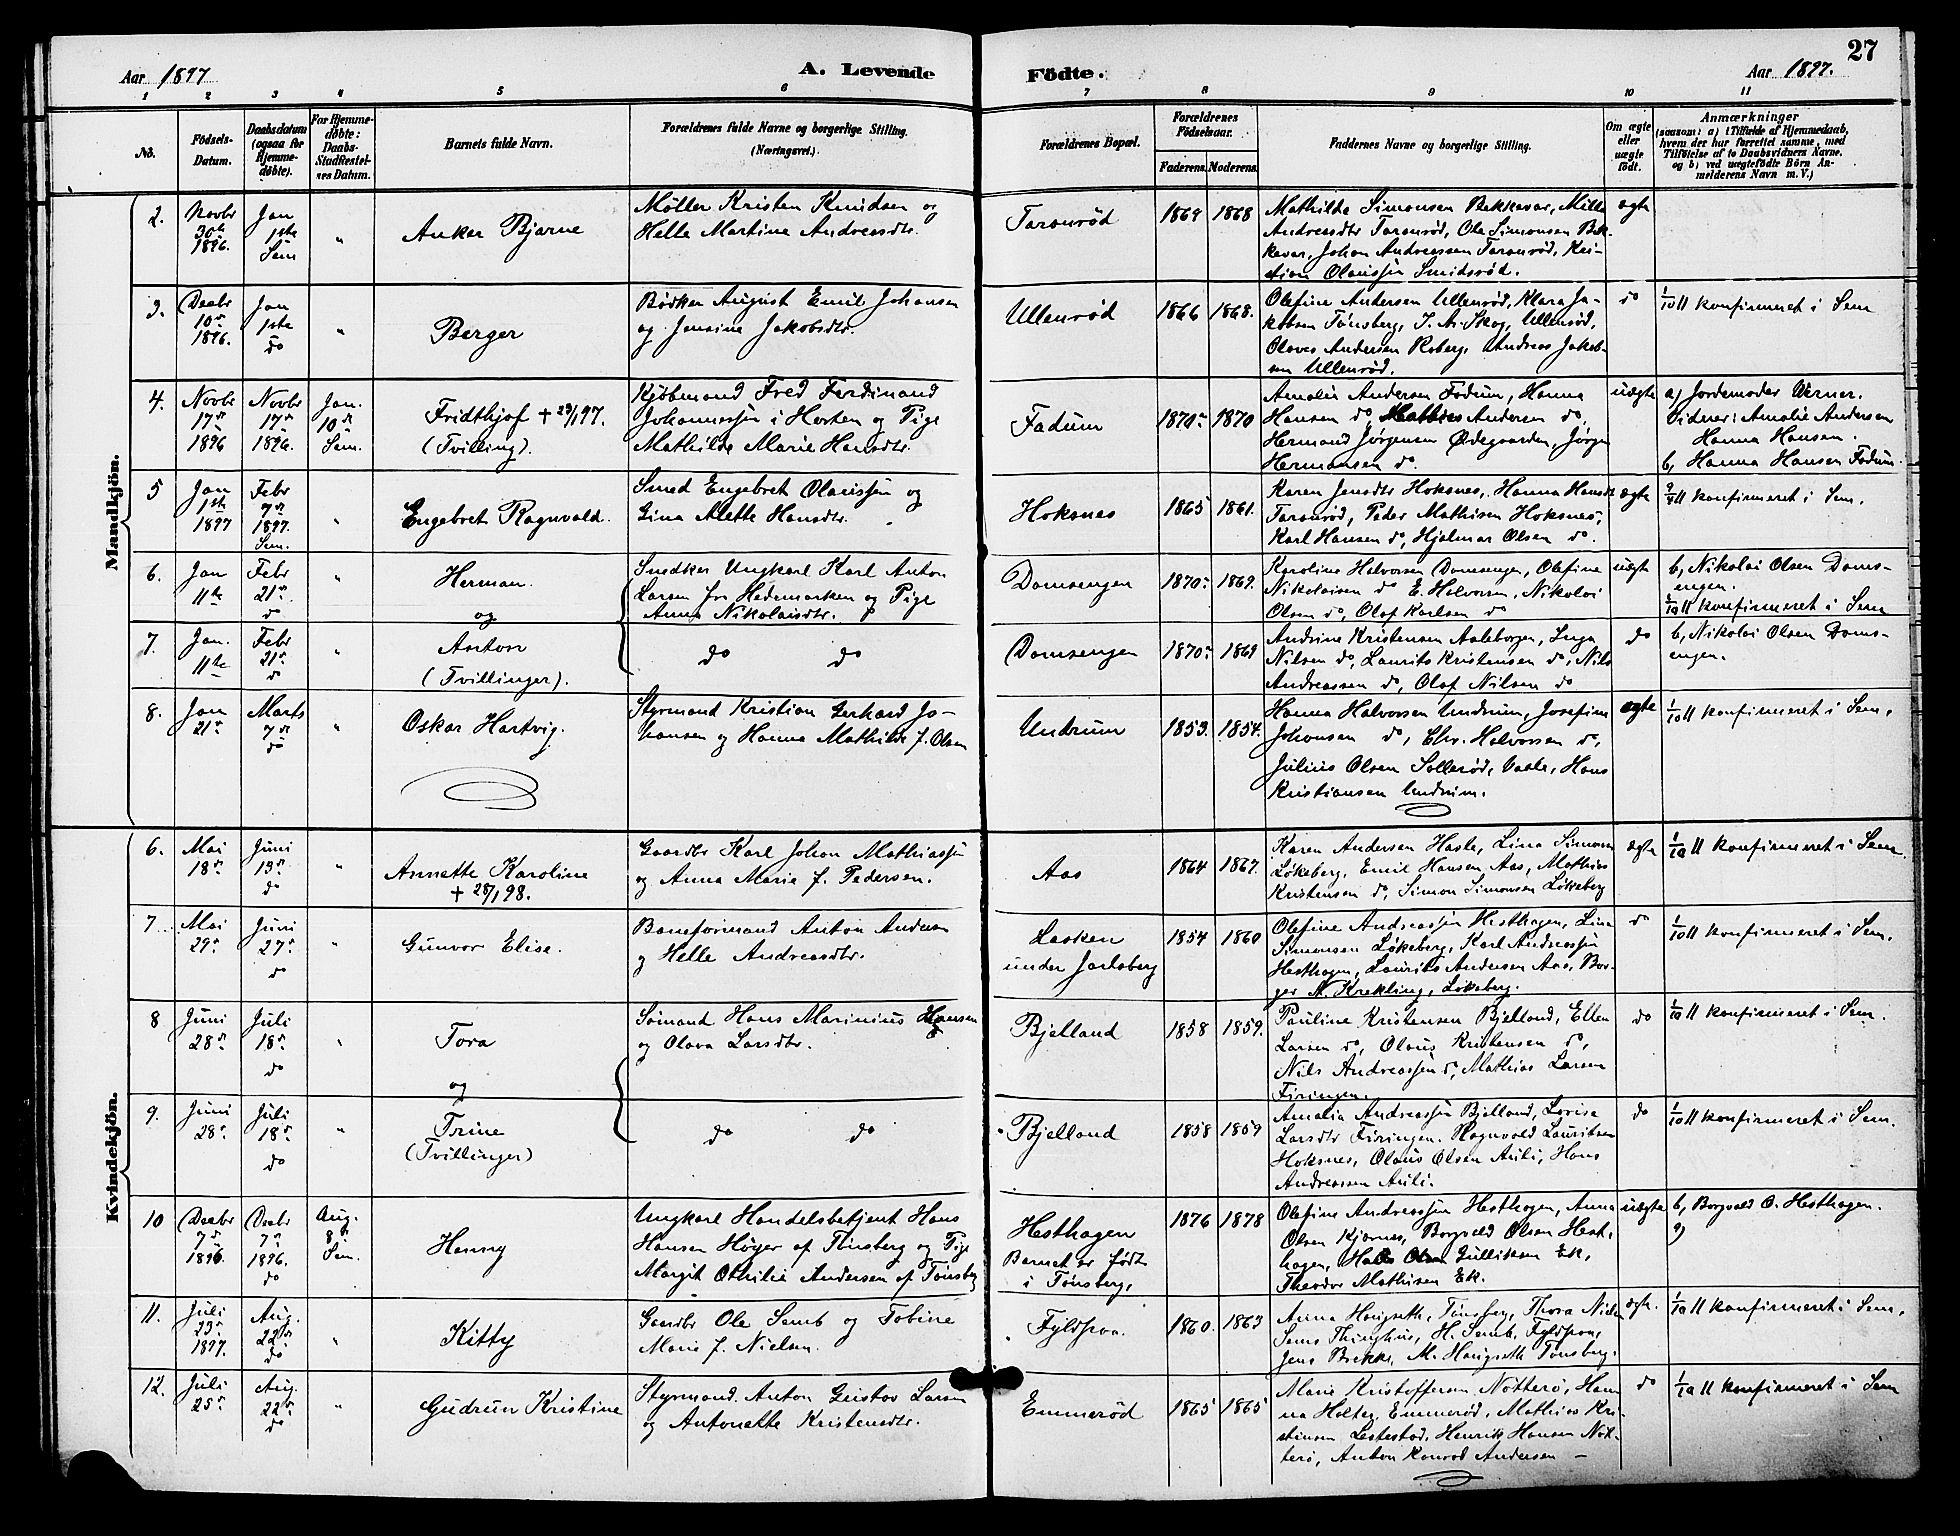 Aar 1897
A. Levende
Födte.
Aar 1897.
27
1 2 3 4 5 6 7 8 9 10 11
No.
Födsels-
Datum.
Daabsdatum
(ogsaa for
Hjemme-
döbte).
For Hjemme-
döbte:
Daabs-
Stadfæstel-
ses Datum.
Barnets fulde Navn.
Forældrenes fulde Navne og borgerlige Stilling.
(Næringsvei.)
Forældrenes Bopæl.
Forældrenes
Födselsaar.
Faderens. Moderens.
Faddernes Navne og borgerlige Stilling.
Om ægte
eller
uægte
født.
Anmærkninger
(saasom: a) i Tilfælde af Hjemmedaab,
hvem der har forrettet samme, med
Tilföielse af to Daabsvidners Navne.
og b) ved uægtefödte Börn An-
melderens Navn m. V.)
Mandkjön.
2.
Novbr
30te
1896.
Jan
1ste
Sem
"
Anker Bjarne
Møller Kristen Knudsen og
Helle Martine Andreasdtr.
Taranrød
1869
1868
Mathilde Simonsen Bekkevar, Milla
Andreasdtr Taranrød, Ole Simonsen Bek-
kevar, Johan Andreassen Taranrød, Kri-
stian Olaussen Smidsrød.
ægte
3.
Decbr
10de
1896.
Jan
1ste
do
"
Berger
Bødker August Emil Johansen
og Jensine Jakobsdtr.
Ullenrød
1866
1868.
Olefine Andersen Ullenrød, Klara Ja-
kobsen Tønsberg, J. A. Skog, Ullenrød,
Olaves Andersen Roberg, Andreas Jakob-
sen Ullenrød.
do
1/10 11 konfirmeret i Sem
4.
Novbr
17de
1896
Novbr
17de
1896.
Jan.
10de
Sem.
Fridthjof + 23/1 97.
(Tvilling).
Kjøbmand Fred Ferdinand
Johannessen i Horten og Pige
Mathilde Marie Hansdtr.
Fadum
1870
1870
Amalie Andersen Fadum, Hanna
Hansen do, Mathias Andersen do,
Hermand Jørgensen Ødegaarden, Jørgen
Hermansen do.
uægte
a) Jordemoder Werner.
Vidner: Amalie Andersen
Hanna Hansen.
b, Hanna Hansen Fadum.
5
Jan
1ste
1897
Febr
7de
1897.
Sem.
"
Engebret Ragnvald.
Smed Engebret Olaussen og
Gina Alette Hansdtr.
Hoksnes
1865
1861.
Karen Jensdtr Hoksnes, Hanna Hansdt
Taranrød, Peder Mathisen Hoksnes,
Karl Hansen do, Hjalmar Olsen do.
ægte
konfirmeret i Sem.
6.
Jan
11te
Febr
21de
do
"
Herman.
og
Snedker Ungkarl Karl Anton
Larsen fra Hedemarken og Pige
Anna Nikolaisdtr.
Domsengen
1870
1869.
Karoline Halvorsen Domsengen, Olefine
Nikolaisen do E. Halvorsen, Nikolai
Olsen do, Olaf Karlsen do
uægte
b, Nikolai Olsen Doms-
engen.
1/10 11 konfirmeret i Sem
7.
Jan.
11te
Febr
21de
do
"
Anton
(Tvillinger).
do do
Domsengen
1870
1869
Andrine Kristensen Aaleborgen, Inga
Nilsen do, Laurits Kristensen do, Nils
Andreassen do, Olaf Nilsen do
do
b, Nikolai Olsen Doms-
engen.
8.
Jan
21de
Marts
7de
do
"
Oskar Hartvig.
Styrmand Kristian Gerhard Jo-
hansen og Hanna Mathilde f. Olsen
Undrum
1853.
1854.
Hanna Halvorsen Undrum, Josefine
Johansen do, Chr. Halvorsen do,
Julius Olsen Sollerød, Vaale, Hans
Kristiansen Undrum.
ægte
1/10 11 konfirmeret i Sem.
Kvindekjön.
6.
Mai
18de
Juni
13de
do
"
Annette Karoline
+ 28/1 98.
Gaardbr Karl Johan Mathiassen
og Anna Marie f. Pedersen.
Aas
1864
1867.
Karen Andersen Hasle, Lina Simonsen
Løkeberg, Emil Hansen Aas, Mathias
Kristensen do, Simon Simonsen Løkeberg
ægte
1/10 11 konfirmeret i Sem.
7.
Mai
29de
Juni
27de
do
"
Gunvor Elise.
Baneformand Anton Andersen
og Helle Andreasdtr.
Lasken
under Jarlsberg
1854
1860
Olefine Andreassen Hesthagen, Lina
Simonsen Løkeberg, Karl Andreassen
Hesthagen, Laurits Andersen Aas, Bor-
ger N. Krekling, Løkeberg.
do
1/10 11 konfirmeret i Sem.
8
Juni
28de
Juli
18de
do
"
Tora
og
Sømand Hans Marinius Hansen
og Olava Larsdtr.
Bjelland
1858
1859.
Pauline Kristensen Bjelland, Ellen
Larsen do, Olaus Kristensen do,
Nils Andreassen do, Mathias Larsen
Firingen.
do
1/10 11 konfirmeret i Sem.
9.
Juni
28de
Juli
18de
do
"
Trine
(Tvillinger)
do do
Bjelland
1858
1859
Amalia Andreassen Bjelland, Lovise
Larsdtr Firingen. Ragnvald Lauritsen
Hoksnes, Olaus Olsen Auli, Hans
Andreassen Auli.
do
1/10 11 konfirmeret i Sem.
10
Decbr
7de
1896.
Decbr
7de
1896.
do
Aug.
8de
Sem.
Henny
Ungkarl Handelsbetjent Hans
Hansen Høyer af Tønsberg og Pige
Margit Othilie Andersen af Tønsberg
Hesthagen
Barnet er født
i Tønsberg,
1876
1878
Olefine Andreassen Hesthagen, Anna
Olsen Kjærnes, Borgvald Olsen Hest-
hagen, Gulliksen Ek,
Theodor Mathisen Ek.
uægte
b, Borgvald O. Hesthagen.
11.
Juli
23de
1897.
Aug.
22de
do
"
Kitty
Gaardbr Ole Semb og Tobine
Marie f. Nielsen.
Fyldpaa.
1860.
1863
Anna Haugseth, Tønsberg, Thora Niel-
sens Thinghus, H. Semb, Fyldpaa,
Jens Brekke, M. Haugseth Tønsberg.
ægte.
1/10 11 konfirmeret i Sem.
12.
Juli
25de
Aug.
22de
do
"
Gudrun Kristine
Styrmand Anton Gustav Larsen
og Antonette Kristensdtr.
Emmerød
1865
1865
Marie Kristoffersen Nøtterø, Han-
na Holter, Emmerød, Mathias Kri-
stensen Lestestad, Henrik Hansen Nøt-
terø, Anton Konrad Andersen –
do
1/10 11 konfirmeret i Sem